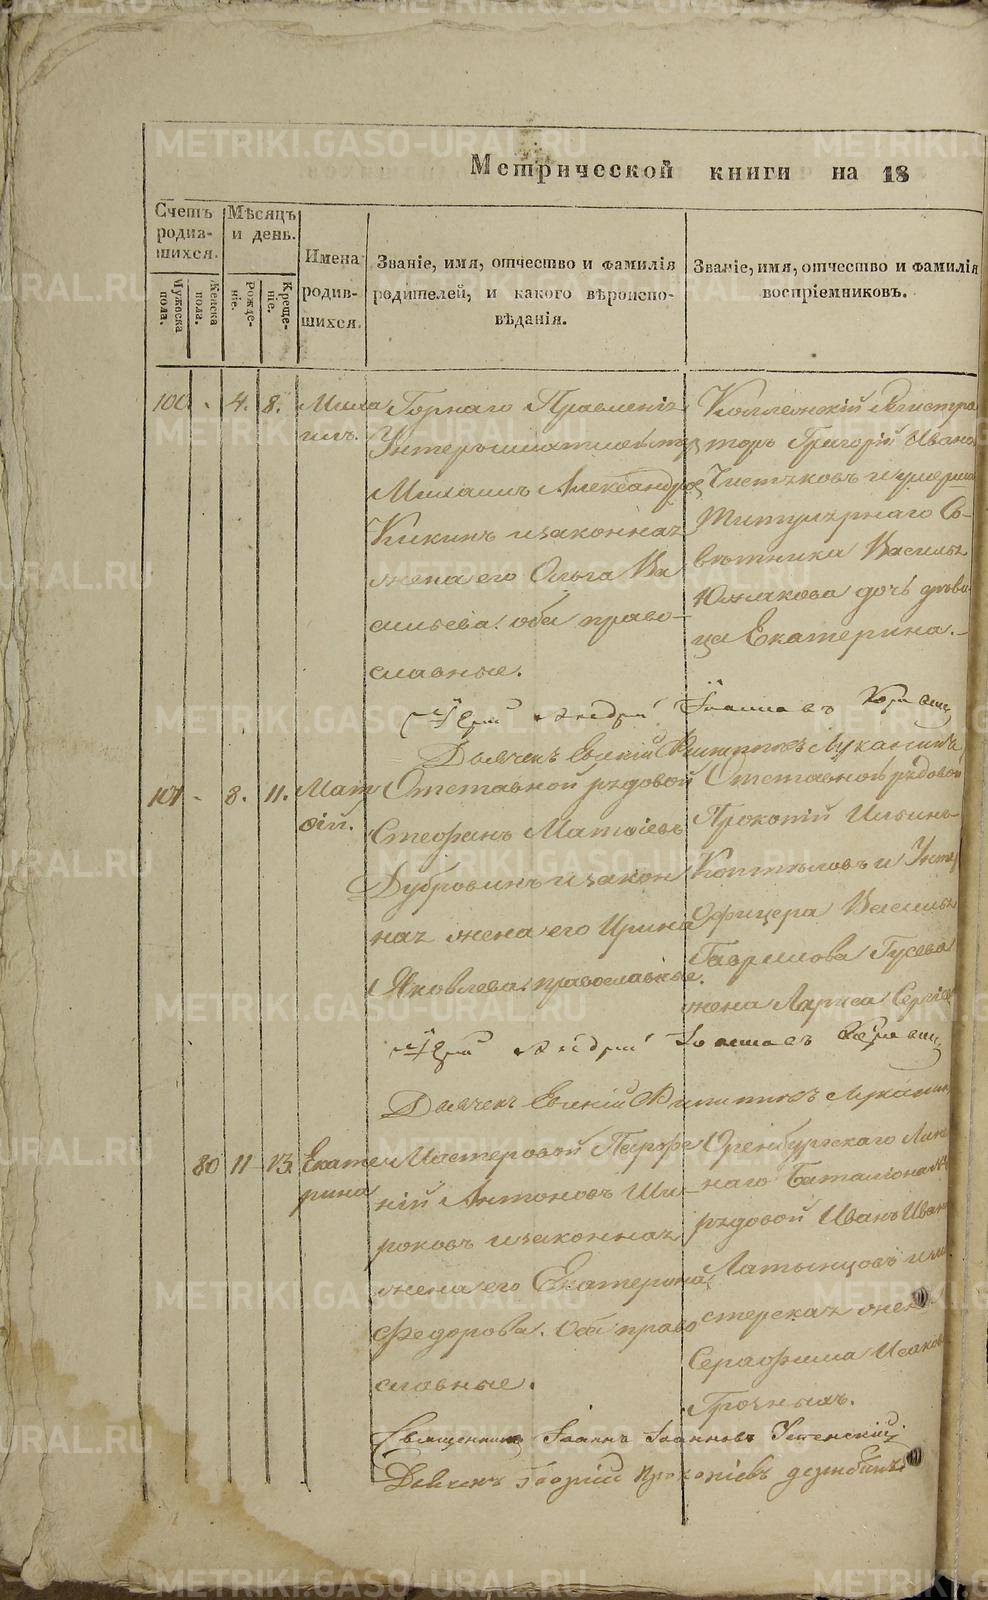 Метрической книги на 18
Счетъ родив-шихся.
Мужеска пола.
Женска пола.
Мѣсяцъ и день.
Рожде-ніе.
Креще-ніе.
Имена родив-шихся.
Званіе, имя, отчество и фамилія
родителей, и какого вѣроиспо-
вѣданія.
Званіе, имя, отчество и фамилія
воспріемниковъ.
100. 4. 8. Миха
илъ.
Горнаго Правленія
Михаилъ Александров
Кикинъ и законная
жена его Ольга Ва
сильева. оба право-
славные.
Коллежскій Регистра
торъ Григорій Ивано
Чистяковъ и умерша
Титулярнаго Со-
вѣтника Василья
Южакова дочь дѣви
ца Екатерина.
Дьячекъ Евгеній Филипповъ Луканинъ
101 - 8. 11. Мат
ѳій.
Отставной рядовой
Стефанъ Матѳіевъ
Дубровинъ и закон
ная жена его Ирина
Яковлева. православные.
Отставной рядовой
Прокопій Ильинъ
Коптяловъ и Унтер
Офицера Василья
Гаврилова Гусева
жена Лариса Сергіев
Дьячекъ Евгеній Филипповъ Луканин
80 11 13. Екате
рина
Мастеровой Парфе
ній Антоновъ Ши-
роковъ и законная
жена его Екатерина
Федорова. Оба право
славные.
Оренбургскаго Лин
наго Баталіона №
рядовой Иванъ Иван
Латынцовъ и ма
стерская жена
Серафима Исаков
Грозныхъ.
Священникъ Іоаннъ Іоанновъ Успенскій
Дьячекъ Георгій Прокопіевъ
METRIKI.GASO-URAL.RU